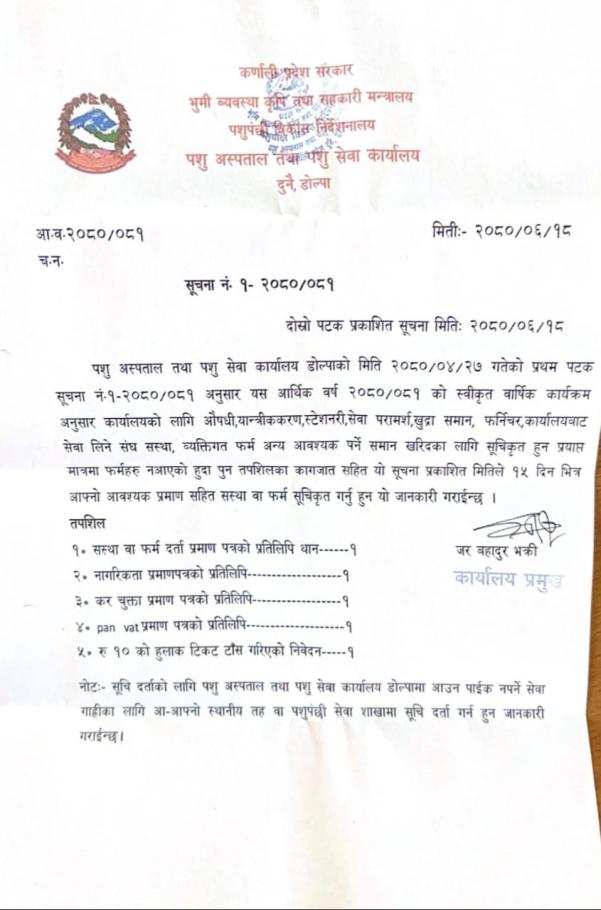 कर्णाली प्रदेश सरकार
भुमी व्यवस्था कृषि तथा सहकारी मन्त्रालय
पशुपंछी विकास निर्देशनालय
पशु अस्पताल तथा पशु सेवा कार्यालय
दुनै, डोल्पा
आ.व.२०८०/०८१
मितीः- २०८०/०६/१८
च.न.
सूचना नं. १- २०८०/०८१
दोस्रो पटक प्रकाशित सूचना मितिः २०८०/०६/१८
पशु अस्पताल तथा पशु सेवा कार्यालय डोल्पाको मिति २०८०/०४/२७ गतेको प्रथम पटक
सूचना नं.१-२०८०/०८१ अनुसार यस आर्थिक वर्ष २०८०/०८१ को स्वीकृत वार्षिक कार्यक्रम
अनुसार कार्यालयको लागि औषधी,यान्त्रीककरण,स्टेशनरी,सेवा परामर्श,खुद्रा समान, फर्निचर,कार्यालयवाट
सेवा लिने संघ सस्था, व्यक्तिगत फर्म अन्य आवश्यक पर्ने समान खरिदका लागि सूचिकृत हुन प्रयाप्त
मात्रमा फर्महरु नआएको हुदा पुन तपशिलका कागजात सहित यो सूचना प्रकाशित मितिले १५ दिन भित्र
आफ्नो आवश्यक प्रमाण सहित सस्था वा फर्म सूचिकृत गर्नु हुन यो जानकारी गराईन्छ ।
तपशिल
१. सस्था वा फर्म दर्ता प्रमाण पत्रको प्रतिलिपि थान------१
२. नागरिकता प्रमाणपत्रको प्रतिलिपि-------------------१
३. कर चुक्ता प्रमाण पत्रको प्रतिलिपि-------------------१
४. pan vat प्रमाण पत्रको प्रतिलिपि--------------------१
५. रु १० को हुलाक टिकट टाँस गरिएको निवेदन-----१
जर बहादुर भक्री
कार्यालय प्रमुख
नोटः- सूचि दर्ताको लागि पशु अस्पताल तथा पशु सेवा कार्यालय डोल्पामा आउन पाईक नपर्ने सेवा
गाहीका लागि आ-आफ्नो स्थानीय तह वा पशुपंछी सेवा शाखामा सूचि दर्ता गर्न हुन जानकारी
गराईन्छ।